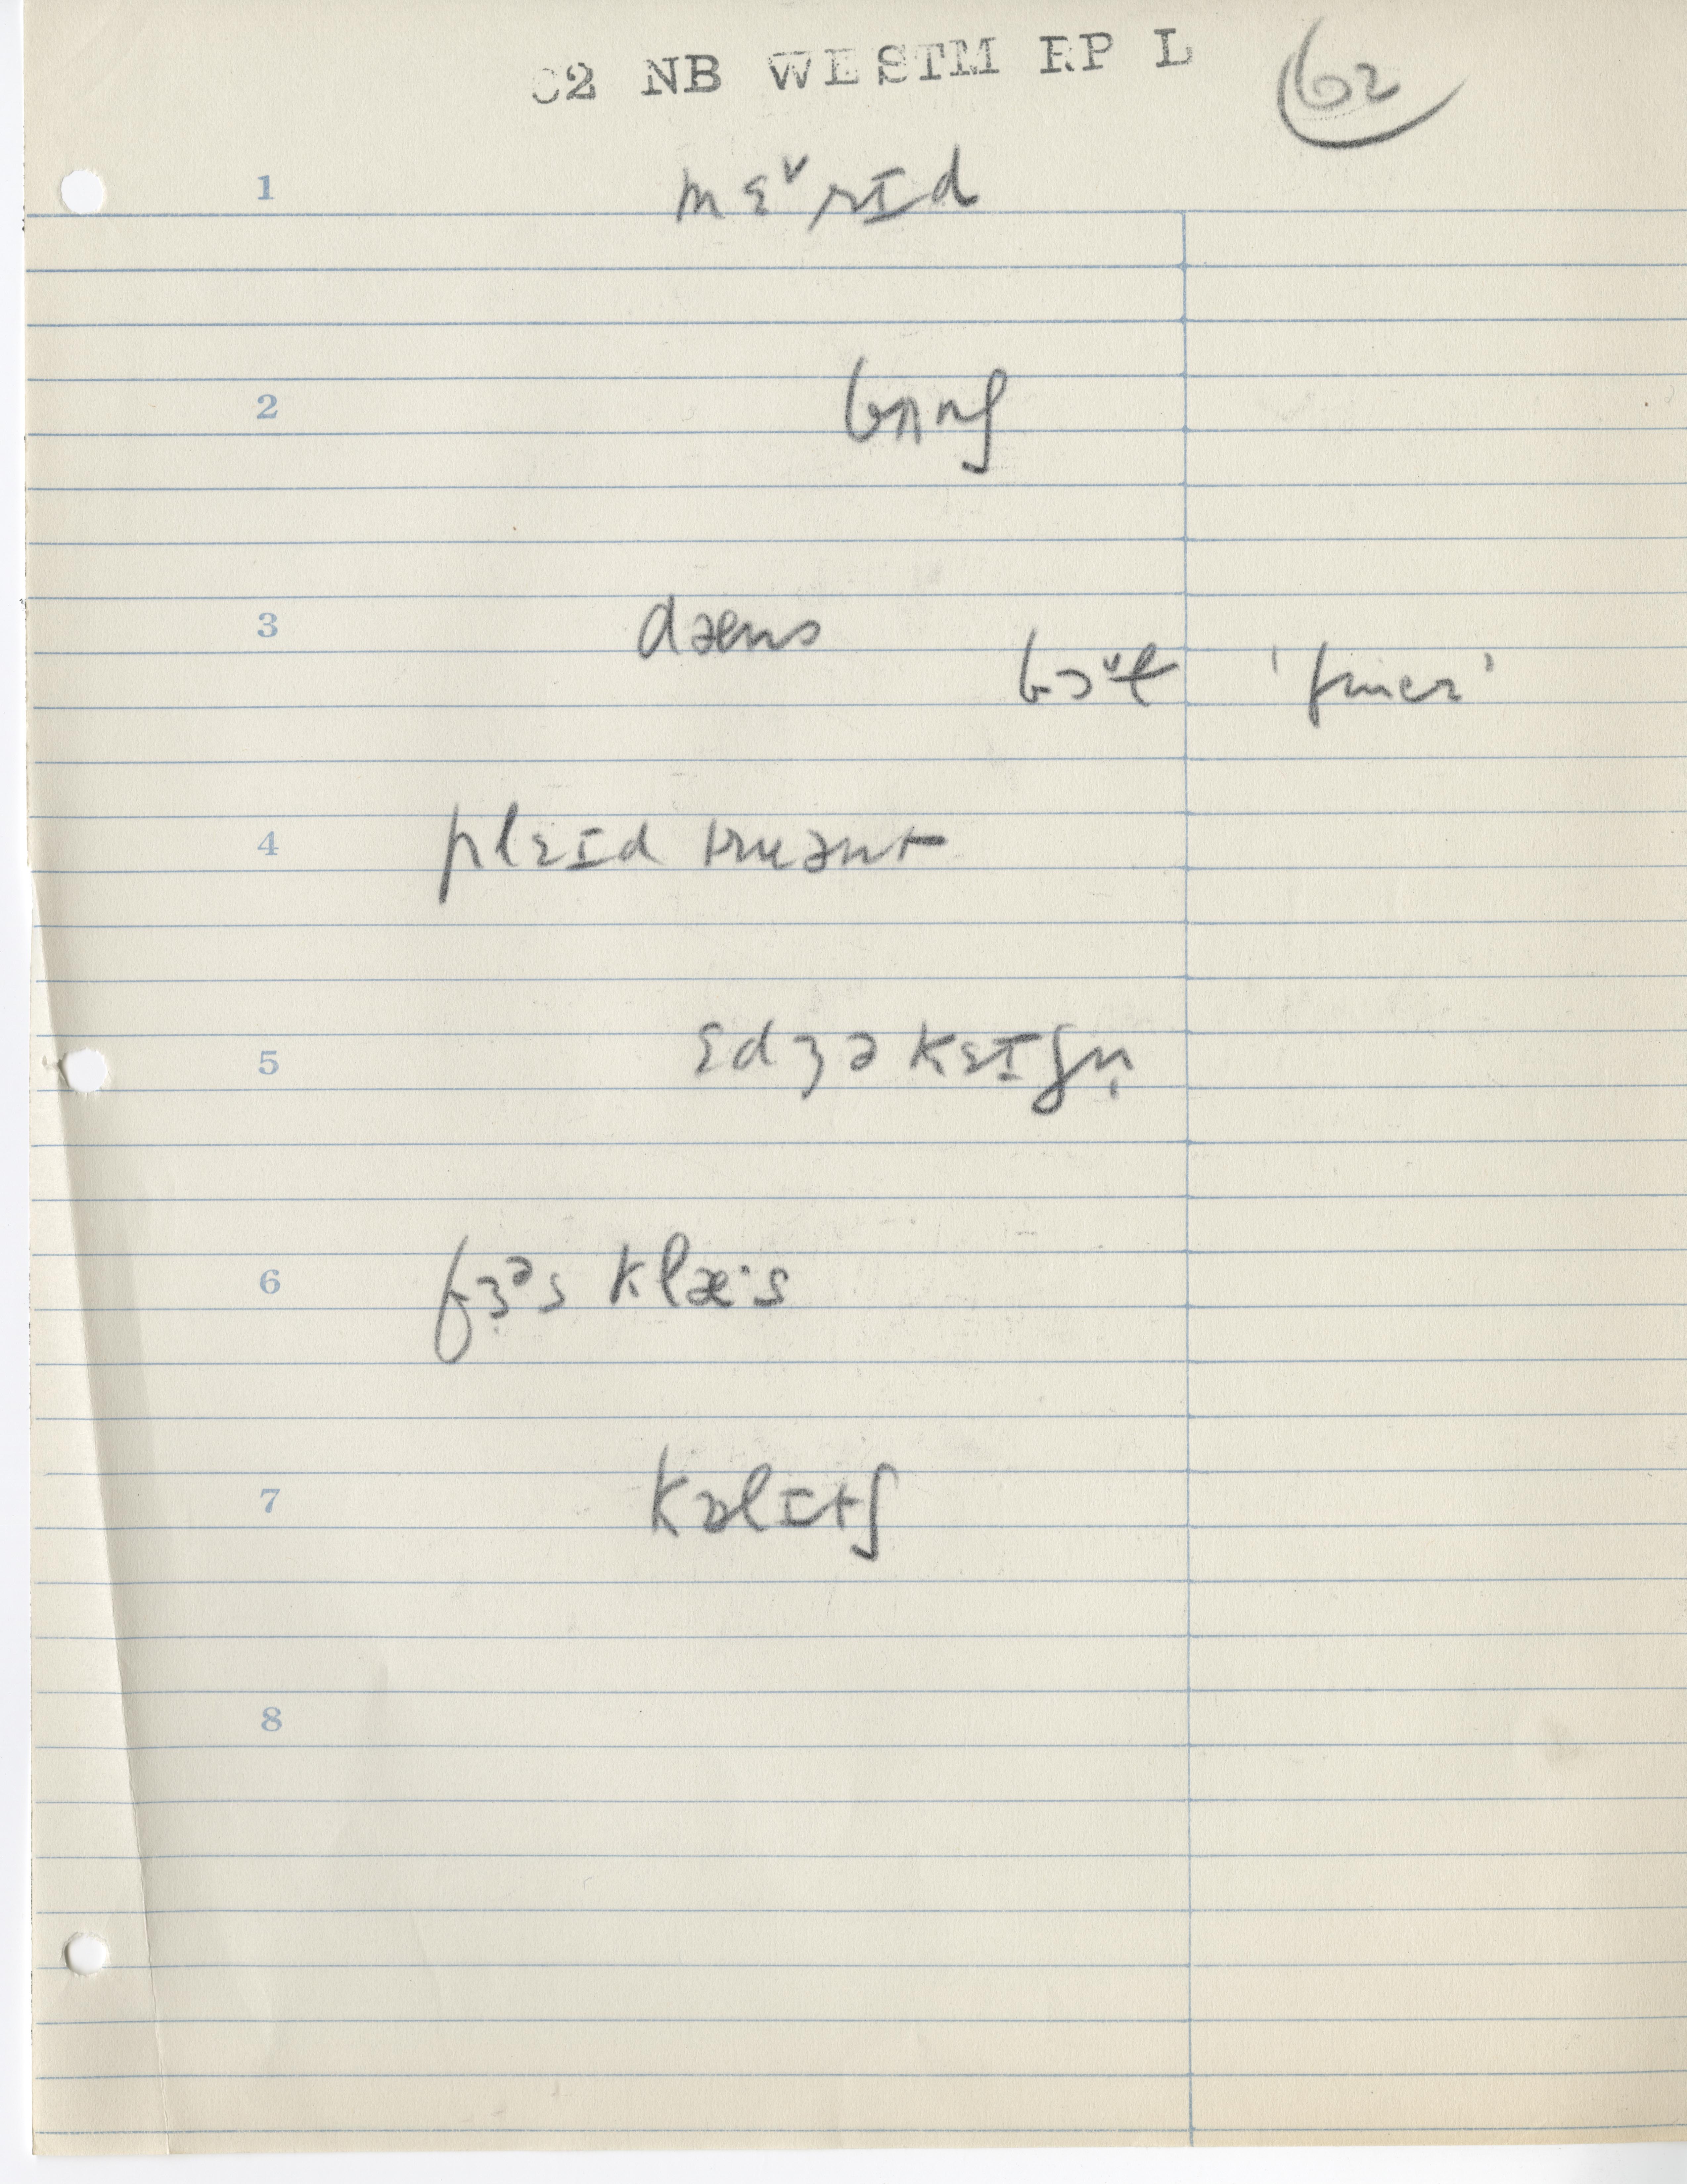 C2 NB WESTM RP L 62
1 mɛ˅rɪd
2 bʌnʃ
3 dæns
bɔ˅ɫ 'finer'
4 plɛɪd truənt
5 ɛdʒəkɛɪʃn̩
6 fɜ̣ᵊs klæ·s
7 kɒlɪtʃ
8